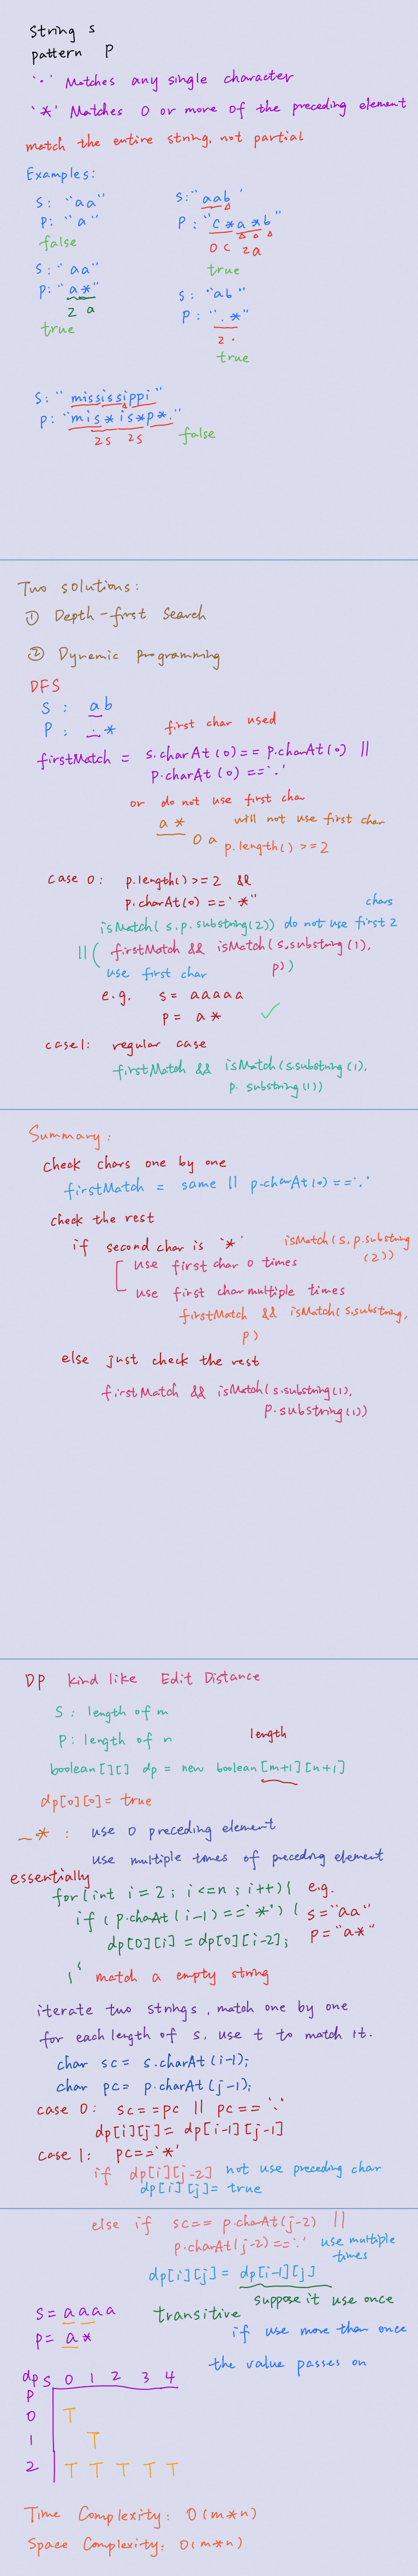 String s
pattern p
'.' Matches any single character
'*' Matches 0 or more of the preceding element
match the entire string, not partial
Examples:
S: "aa"
P: "a"
false
S: "aa"
P: "a*"
2 a
true
S: "aab"
P: "c*a*b"
0 c 2a
true
S: "ab"
P: ".*"
2 .
true
S: "mississippi"
P: "mis*is*p*."
2s 2s
false
Two solutions:
① Depth-first Search
② Dynamic programming
DFS
S : ab
P : .*
first char used
firstMatch = s.charAt(0) == p.charAt(0) ||
p.charAt(0) == '.'
or do not use first char
a * will not use first char
0 a p.length() >= 2
case 0: p.length() >= 2 &&
p.charAt(0) == '*"
chars
isMatch(s, p.substring(2)) do not use first 2
|| ( firstMatch && isMatch(s.substring(1),
use first char p))
e.g. s = aaaaa
p = a * ✓
case1: regular case
firstMatch && isMatch(s.substring(1),
p. substring(1))
Summary:
check chars one by one
firstMatch = same || p.charAt(0) == '.'
check the rest
if second char is '*' isMatch(s, p.substring
(2))
use first char 0 times
use first char multiple times
firstMatch && isMatch(s.substring,
p)
else just check the rest
firstMatch && isMatch(s.substring(1),
p.substring(1))
DP kind like Edit Distance
S : length of m
P : length of n
length
boolean[][] dp = new boolean[m+1][n+1]
dp[0][0] = true
_* : use 0 preceding element
use multiple times of preceding element
essentially
for(int i = 2; i <= n; i++){ e.g.
if (p.charAt(i-1) == '*') { s="aa"
dp[0][i] = dp[0][i-2]; p="a*"
match a empty string
iterate two strings, match one by one
for each length of s, use t to match it.
char sc = s.charAt(i-1);
char pc = p.charAt(j-1);
case 0: sc == pc || pc == '.'
dp[i][j] = dp[i-1][j-1]
case 1: pc == '*'
if dp[i][j-2] not use preceding char
dp[i][j] = true
else if sc == p.charAt(j-2) ||
p.charAt(j-2) == '.' use multiple
times
dp[i][j] = dp[i-1][j]
suppose it use once
S = aaaa transitive
P = a *
if use more than once
the value passes on
dp S 0 1 2 3 4
P
0 T
1 T
2 T T T T T
Time Complexity: O(m*n)
Space Complexity: O(m*n)